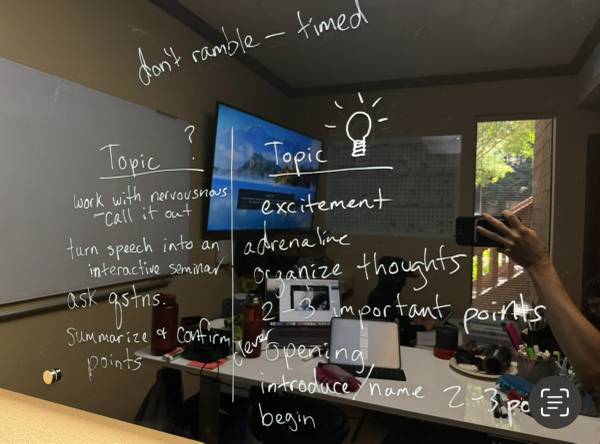 don't ramble – timed
Topic ?
work with nervousnous
– call it out
turn speech into an
interactive seminar
ask qstns.
summarize & confirm
points
Topic
excitement
adrenaline
organize thoughts
2–3 important points
clever opening
introduce/name 2–3 po
begin